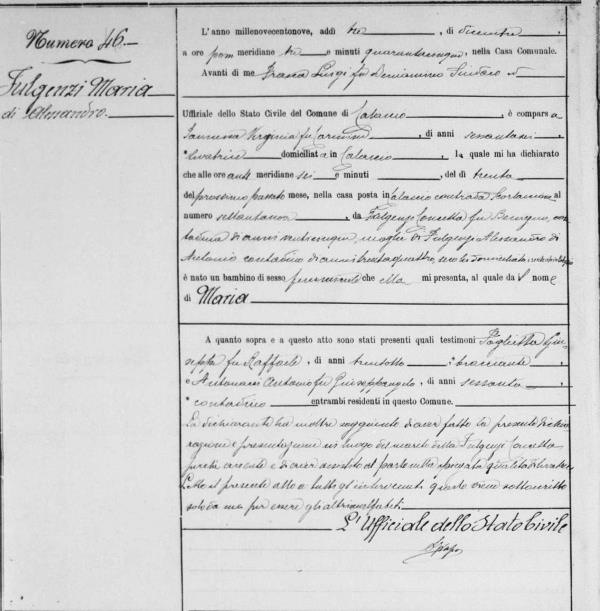 Numero 46.—
Fulgenzi Maria
di Alessandro.
L'anno millenovecentonove, addì tre, di dicembre,
a ore pom meridiane tre e minuti quarantacinque, nella Casa Comunale.
Avanti di me Luigi fu Beniamino Sindaco
Uffiziale dello Stato Civile del Comune di Calascio, è comparsa
Virginia fu, di anni sessanta
levatrice domiciliata in Calascio, la quale mi ha dichiarato
che alle ore anti meridiane sei e minuti, del dì trenta
del prossimo passato mese, nella casa posta in Calascio contrada al
numero settanta, da Fulgenzi Concetta fu, con
tadina di anni venticinque moglie di Fulgenzi Alessandro di
Antonio contadino di anni trentaquattro, seco lei domiciliata
è nato un bambino di sesso femminile che ella mi presenta, al quale dà il nome
di Maria
A quanto sopra e a questo atto sono stati presenti quali testimoni Paglietta Giu
seppe fu Raffaele, di anni trentotto, bracciante
e Antonio fu Giuseppangelo, di anni sessanta,
contadino entrambi residenti in questo Comune.
La dichiarante ha inoltre soggiunto di aver fatto la presente dichia
razione e presentazione in luogo del marito della Fulgenzi Concetta
perché assente e di aver assistito al parto nella spiegata qualità di levatrice
Letto il presente atto a tutti gl'intervenuti questo viene sottoscritto
solo da me per essere gli altri analfabeti.
L'Ufficiale dello Stato Civile